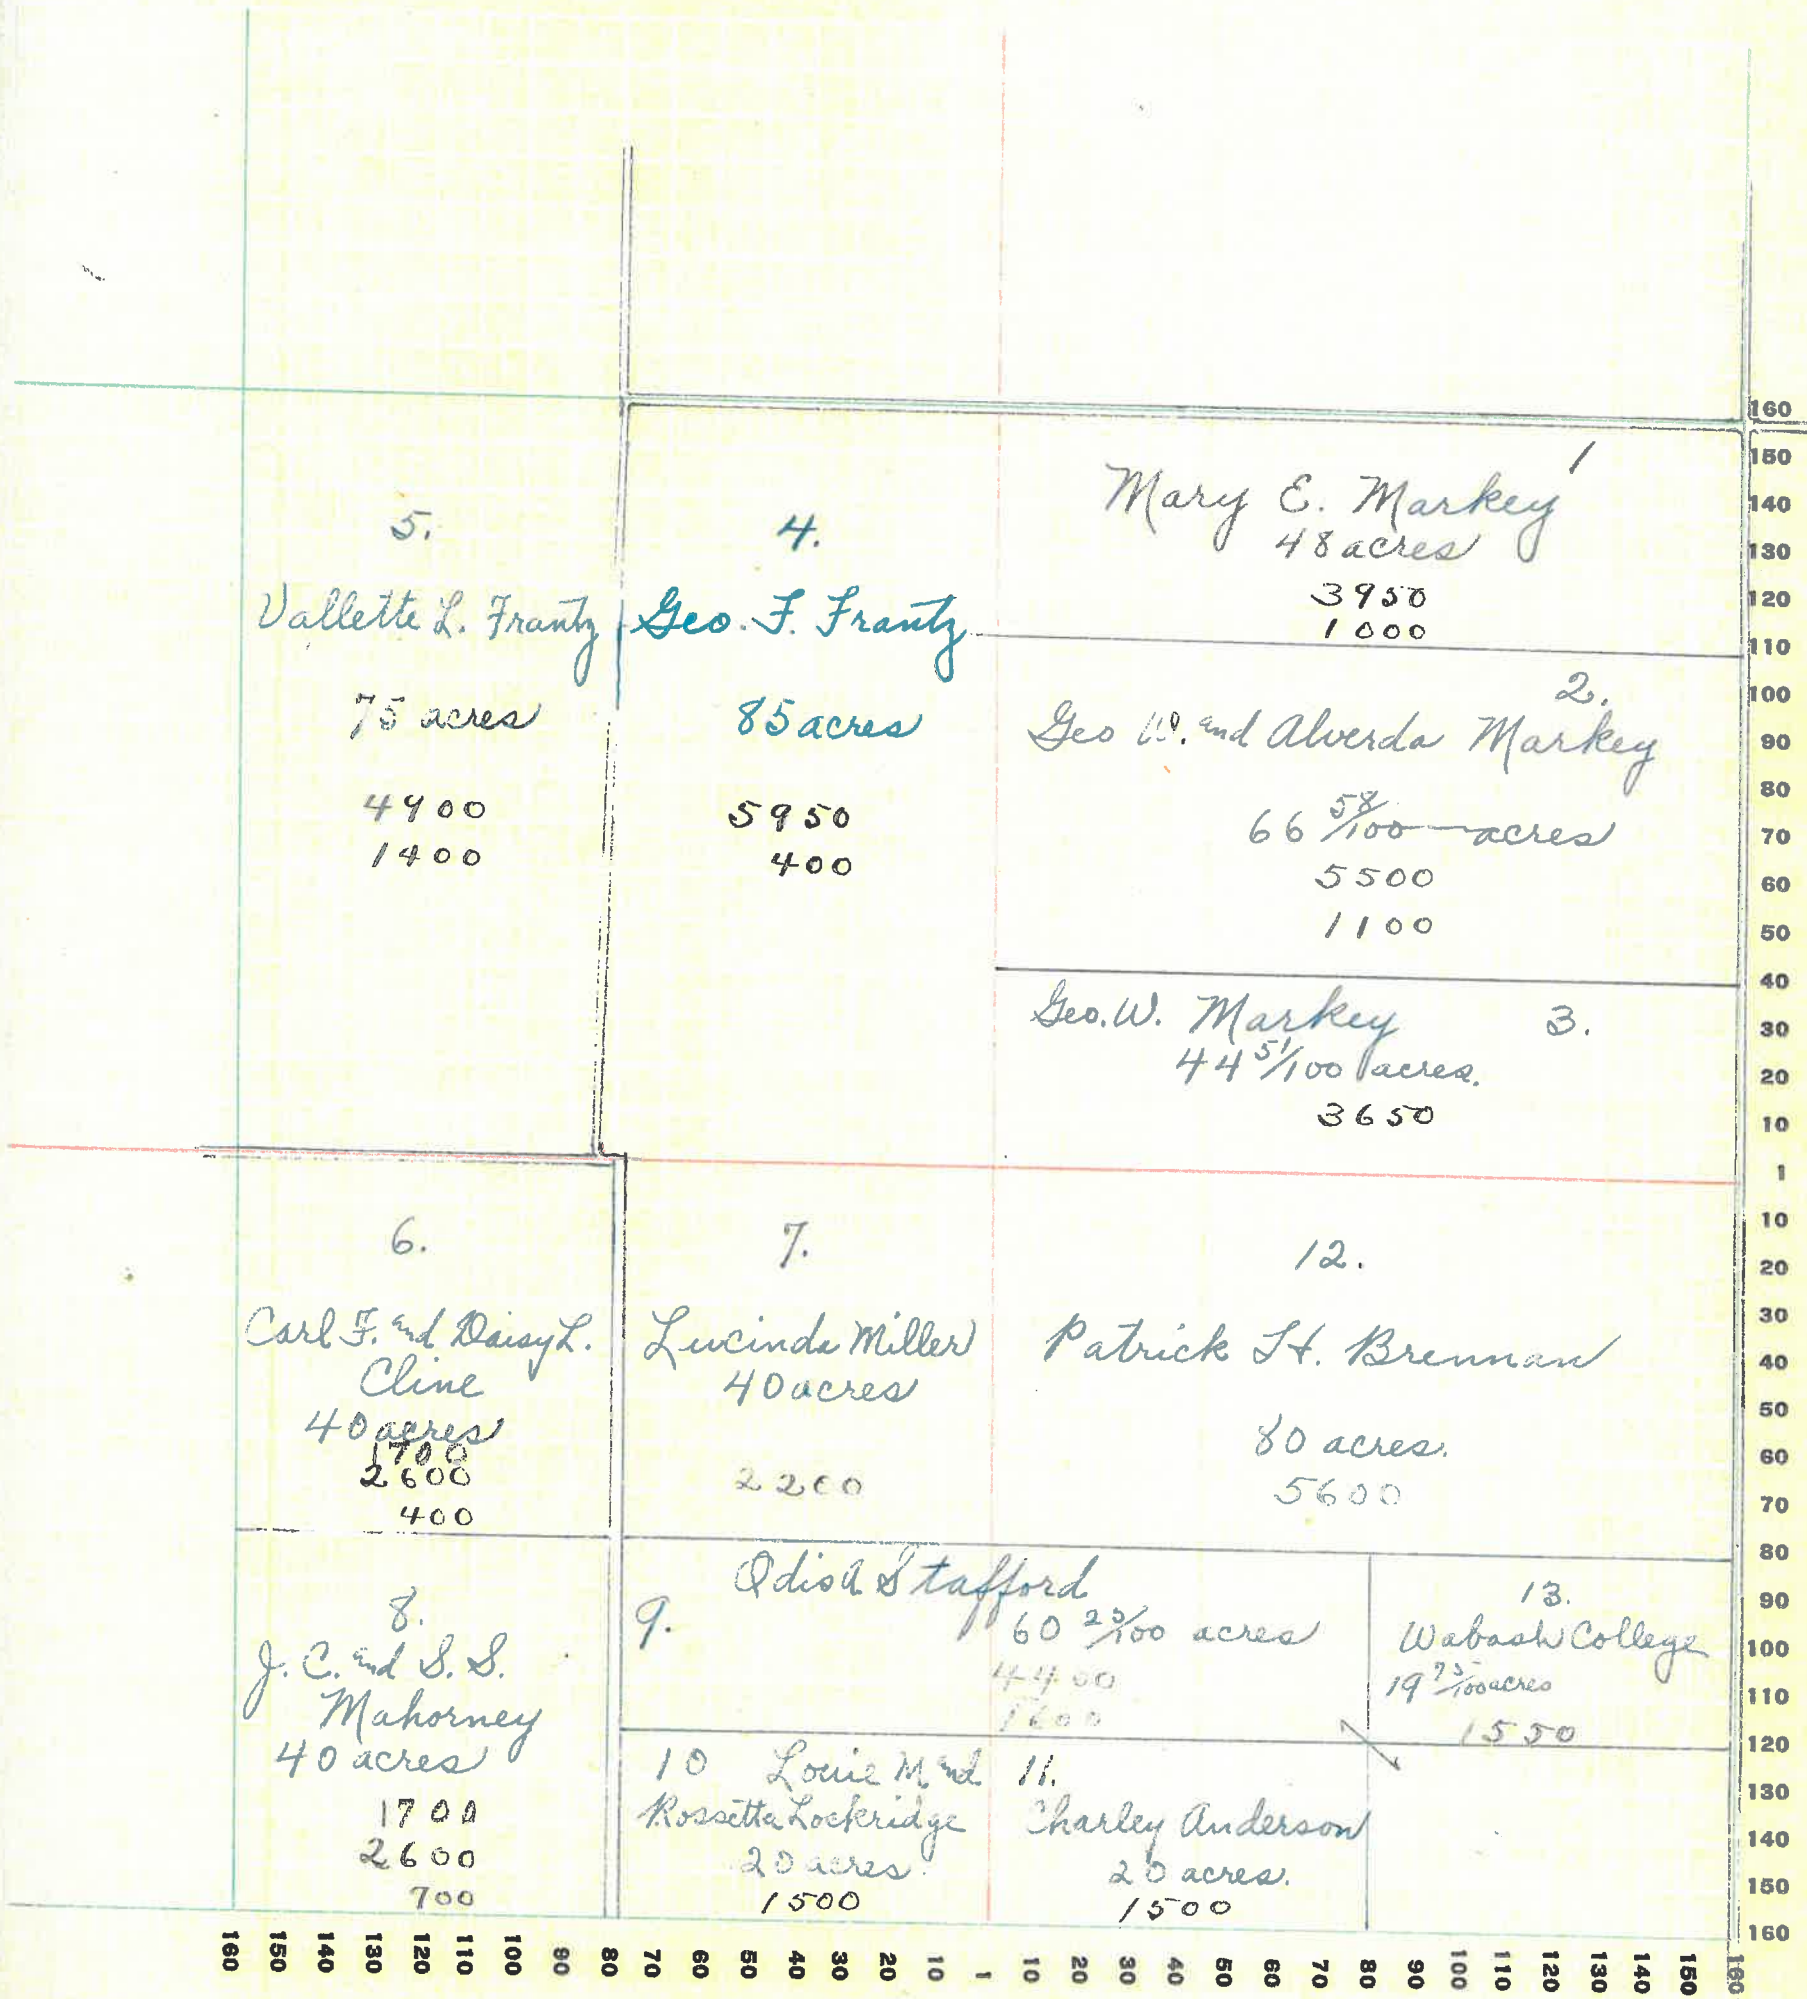 1
Mary E. Markey
48 acres
3950
1000
2.
Geo W. and Alverda Markey
66 58/100 acres
5500
1100
Geo. W. Markey 3.
44 51/100 acres.
3650
4.
Geo. F. Frantz
85 acres
5950
400
5.
Vallette L. Frantz
75 acres
4900
1400
6.
Carl F. and Daisy L.
Cline
40 acres
1700
2600
400
7.
Lucinda Miller
40 acres
2200
12.
Patrick H. Brennan
80 acres.
5600
8.
J. C. and S. S.
Mahorney
40 acres
1700
2600
700
Odis A Stafford
9.
60 25/100 acres
4400
1600
13.
Wabash College
19 75/100 acres
1550
10 Louie M. and
Rossetta Lockridge
20 acres.
1500
11.
Charley Anderson
20 acres.
1500
160
150
140
130
120
110
100
90
80
70
60
50
40
30
20
10
1
10
20
30
40
50
60
70
80
90
100
110
120
130
140
150
160
160 150 140 130 120 110 100 90 80 70 60 50 40 30 20 10 1 10 20 30 40 50 60 70 80 90 100 110 120 130 140 150 160